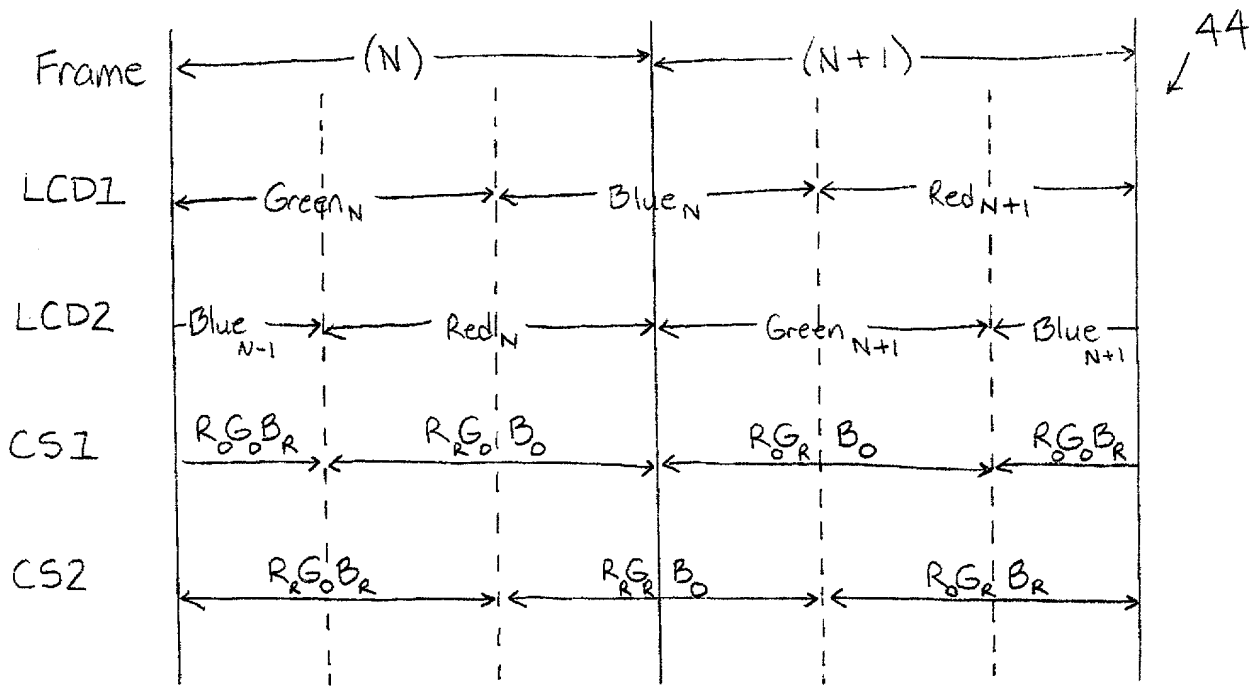 44
Frame (N) (N+1)
LCD1 Green_N Blue_N Red_N+1
LCD2 Blue_N-1 Red_N Green_N+1 Blue_N+1
CS1 R_OG_OB_R R_RG_OB_O R_OG_RB_O R_OG_OB_R
CS2 R_RG_OB_R R_RG_RB_O R_OG_RB_R